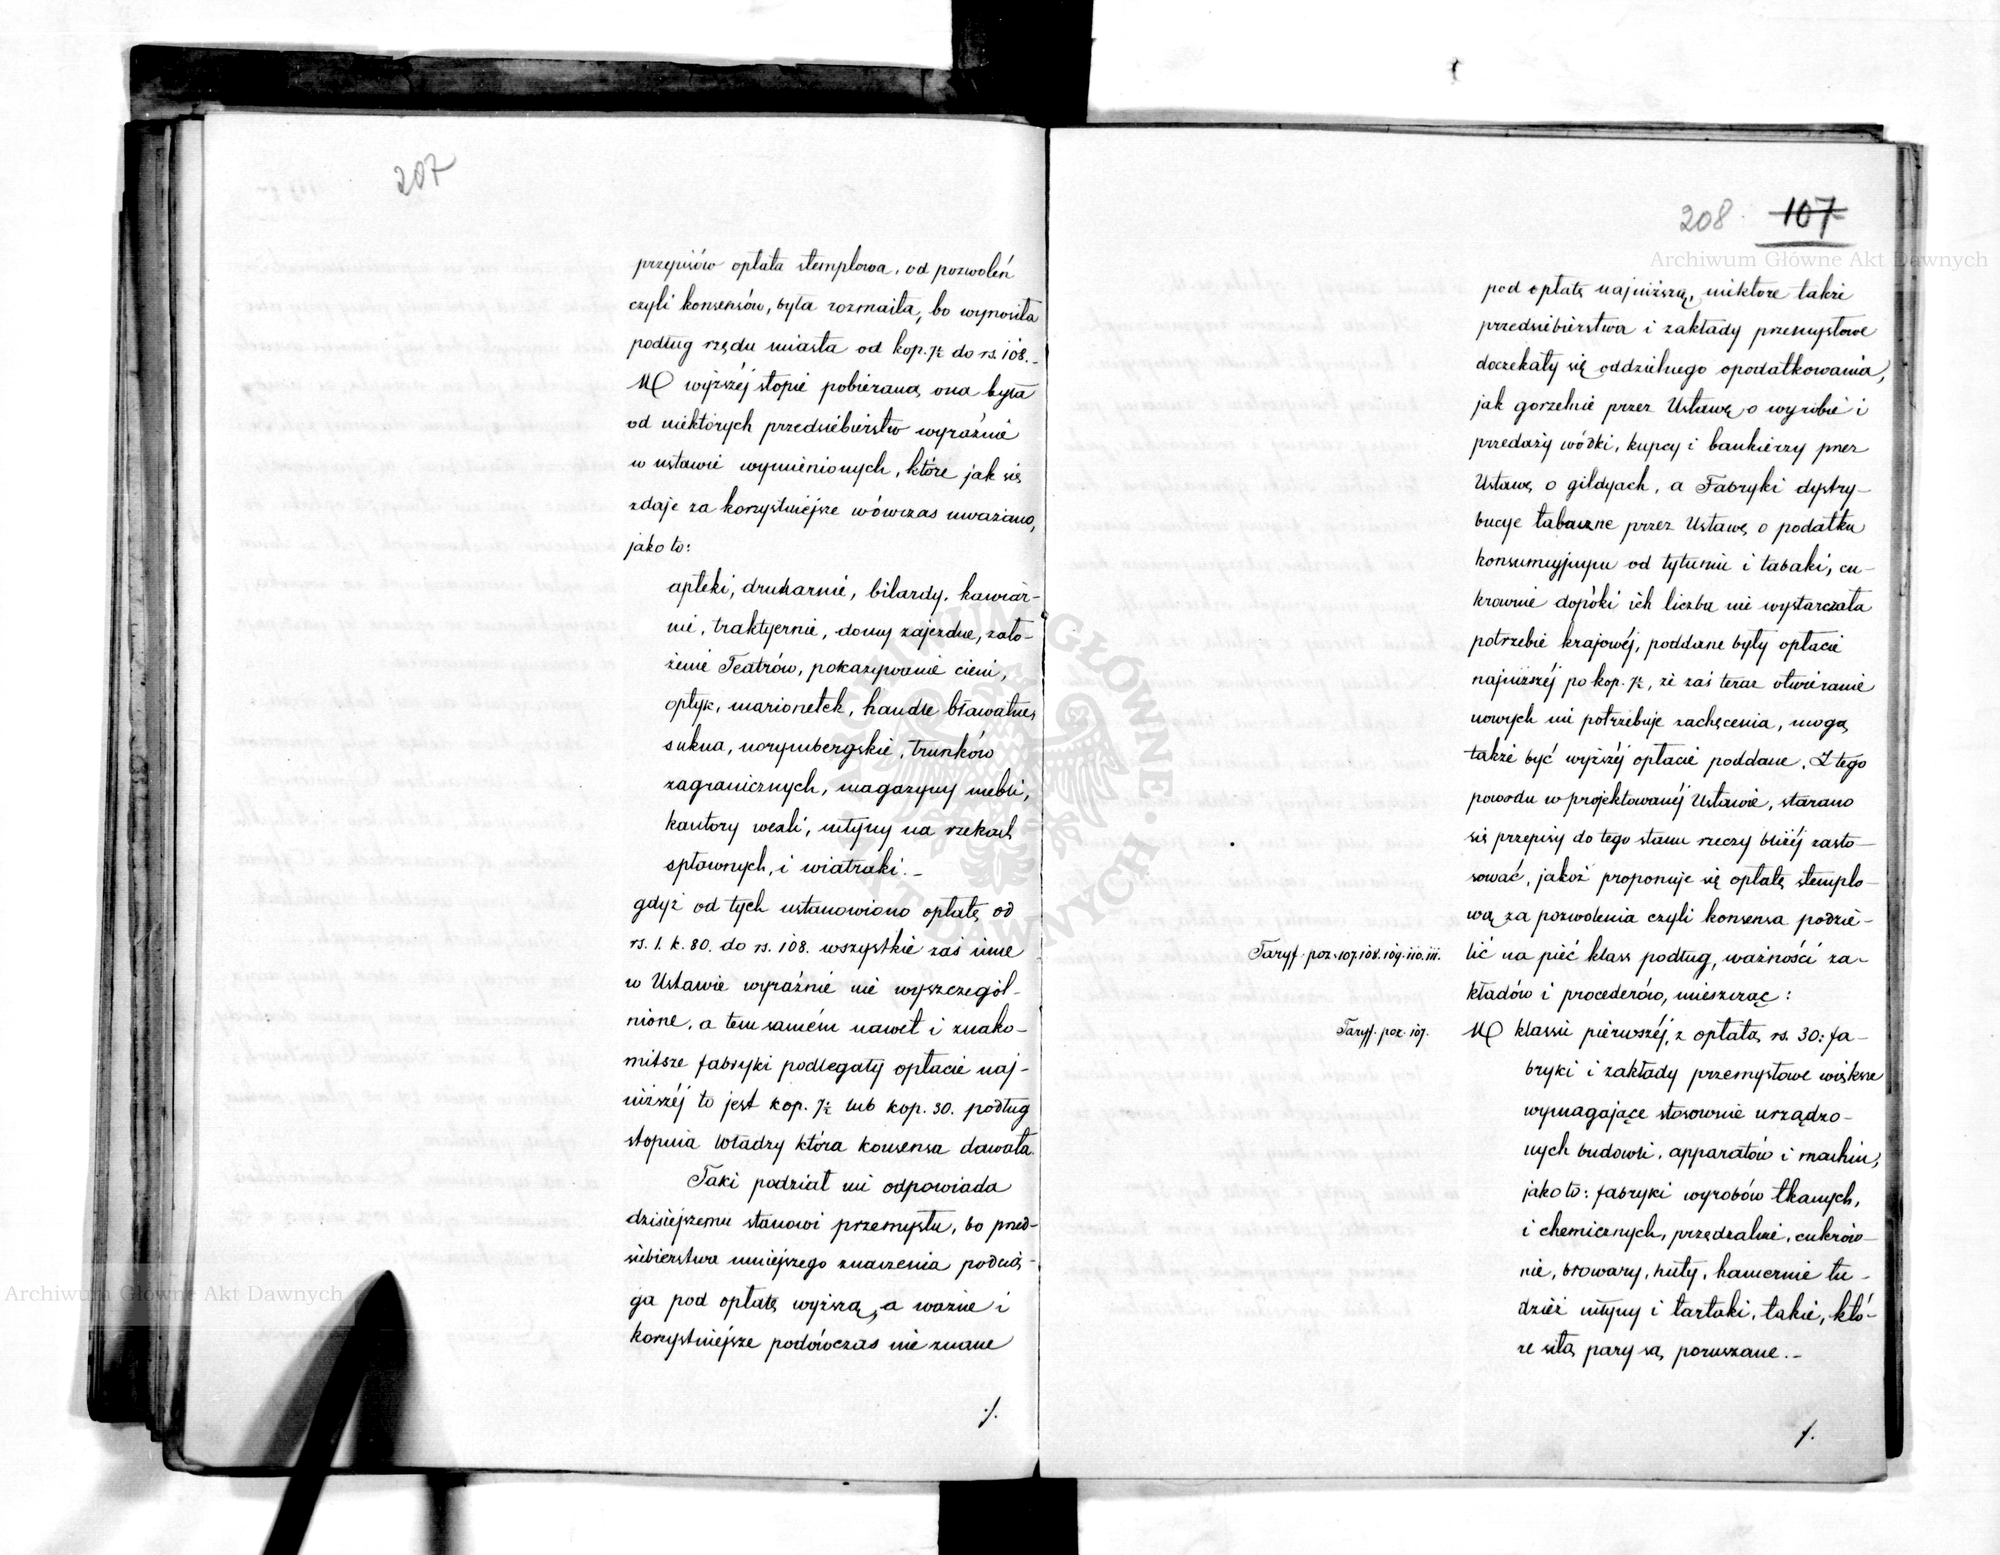 207
przepisów opłata stemplowa, od pozwoleń
czyli konsensów, była rozmaita, bo wynosiła
podług rzędu miasta od kop. 7½ do rs. 108.-
W wyższéj stopie pobieraną ona była
od niektórych przedsiebierstw wyraźnie
w ustawie wymienionych, które jak się
zdaje za korzystniejsze wówczas uważano,
jako to:
apteki, drukarnie, bilardy, kawiar-
nie, traktyernie, domy zajezdne, zało-
żenie Teatrów, pokazywanie cieni,
optyk, marionetek, handle bławatne,
sukna, norymbergskie, trunków
zagranicznych, magazyny mebli,
kantory wexli, młyny na rzekach
spławnych, i wiatraki.-
gdyż od tych ustanowiono opłatę od
rs. 1. k. 80. do rs. 108. wszystkie zaś inne
w Ustawie wyraźnie nie wyszczegól-
nione, a tem samém nawet i znako-
mitsze fabryki podlegały opłacie naj-
niższéj to jest kop. 7½ lub kop. 30. podług
stopnia Władzy która konsensa dawała.
Taki podział nie odpowiada
dzisiejszemu stanowi przemysłu, bo przed-
siebierstwa mniejszego znaczenia podcią-
ga pod opłatę wyższą, a ważne i
korzystniejsze podówczas nie znane
./.
208. 107
Archiwum Główne Akt Dawnych
pod opłatę najniższą, niektóre także
przedsiebierstwa i zakłady przemysłowe
doczekały się oddzielnego opodatkowania,
jak gorzelnie przez Ustawę o wyrobie i
przedaży wódki, kupcy i bankierzy przez
Ustawę o gildyach, a Fabryki dystry-
bucye tabaczne przez Ustawę o podatku
konsumcyjnym od tytuniu i tabaki, cu-
krownie dopóki ich liczba nie wystarczała
potrzebie krajowéj, poddane były opłacie
najniższéj po kop. 7½, że zaś teraz otwieranie
nowych nie potrzebuje zachęcenia, mogą
także być wyższéj opłacie poddane. Z tego
powodu w projektowanéj Ustawie, starano
się przepisy do tego stanu rzeczy bliżéj zasto-
sować, jakoż proponuje się opłatę stemplo-
wą za pozwolenia czyli konsensa podzie-
Taryf. poz. 107.108.109.110.111.
lić na pięć klass podług, ważności za-
kładów i procederów, mieszcząc:
Taryf. poz. 107.
W klassie pierwszéj, z opłatą rs. 30: fa-
bryki i zakłady przemysłowe większe
wymagające stosownie urządzo-
nych budowli, apparatów i machin,
jako to: fabryki wyrobów tkanych,
i chemicznych, przędzalnie, cukrow-
nie, browary, huty, hamernie tu-
dzież młyny i tartaki, takie, któ-
re siłą pary są poruszane.-
/.
Archiwum Główne Akt Dawnych
ARCHIWUM GŁÓWNE AKT DAWNYCH